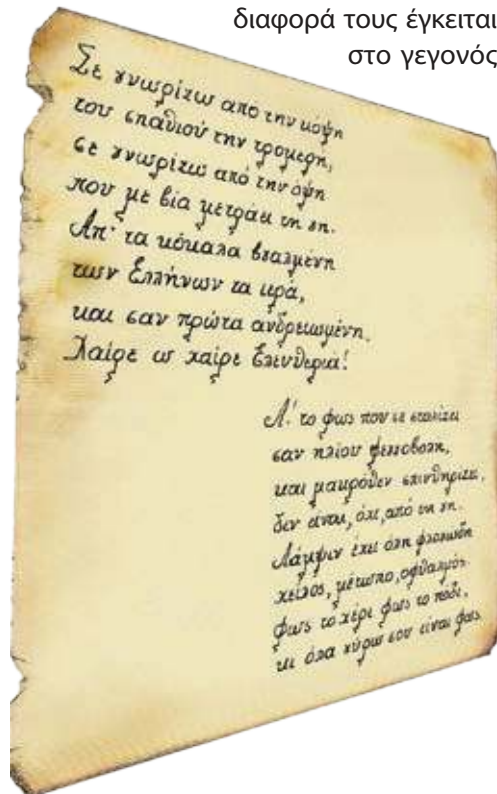 διαφορά τους έγκειται
στο γεγονός
Σε γνωρίζω από την κόψη
του σπαθιού την τρομερή,
σε γνωρίζω από την όψη
που με βία μετράει τη γη.
Απ' τα κόκαλα βγαλμένη
των Ελλήνων τα ιερά,
και σαν πρώτα ανδρειωμένη,
Χαίρε ω χαίρε Ελευθεριά!
Α! το φως που σε στολίζει
σαν ηλίου φεγγοβολή,
και μακρόθεν σπινθηρίζει,
δεν είναι, όχι, από τη γη.
Λάμψιν έχει όλη φλογώδη
χείλος, μέτωπο, οφθαλμός·
φως το χέρι φως το πόδι,
κι όλα γύρω σου είναι φως.